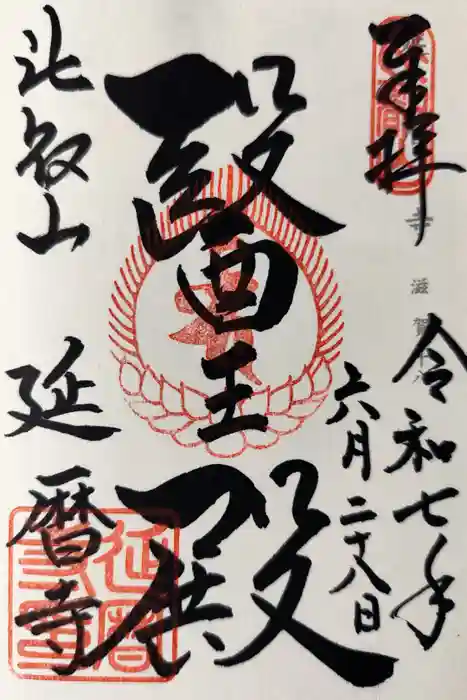 奉拝
寺
滋賀
令和七年
六月二十八日
醫王殿
比叡山
延暦寺
延暦